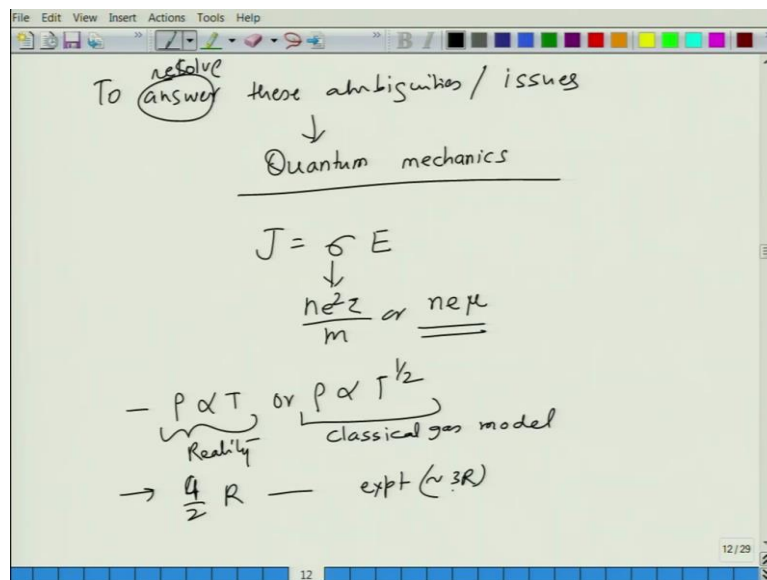 File Edit View Insert Actions Tools Help
B I
resolve
To answer these ambiguities / issues
↓
Quantum mechanics
J = σ E
↓
ne²τ/m or neμ
- ρ ∝ T or ρ ∝ T^1/2
Reality classical gas model
→ 9/2 R — expt (~ 3R)
12/29
12